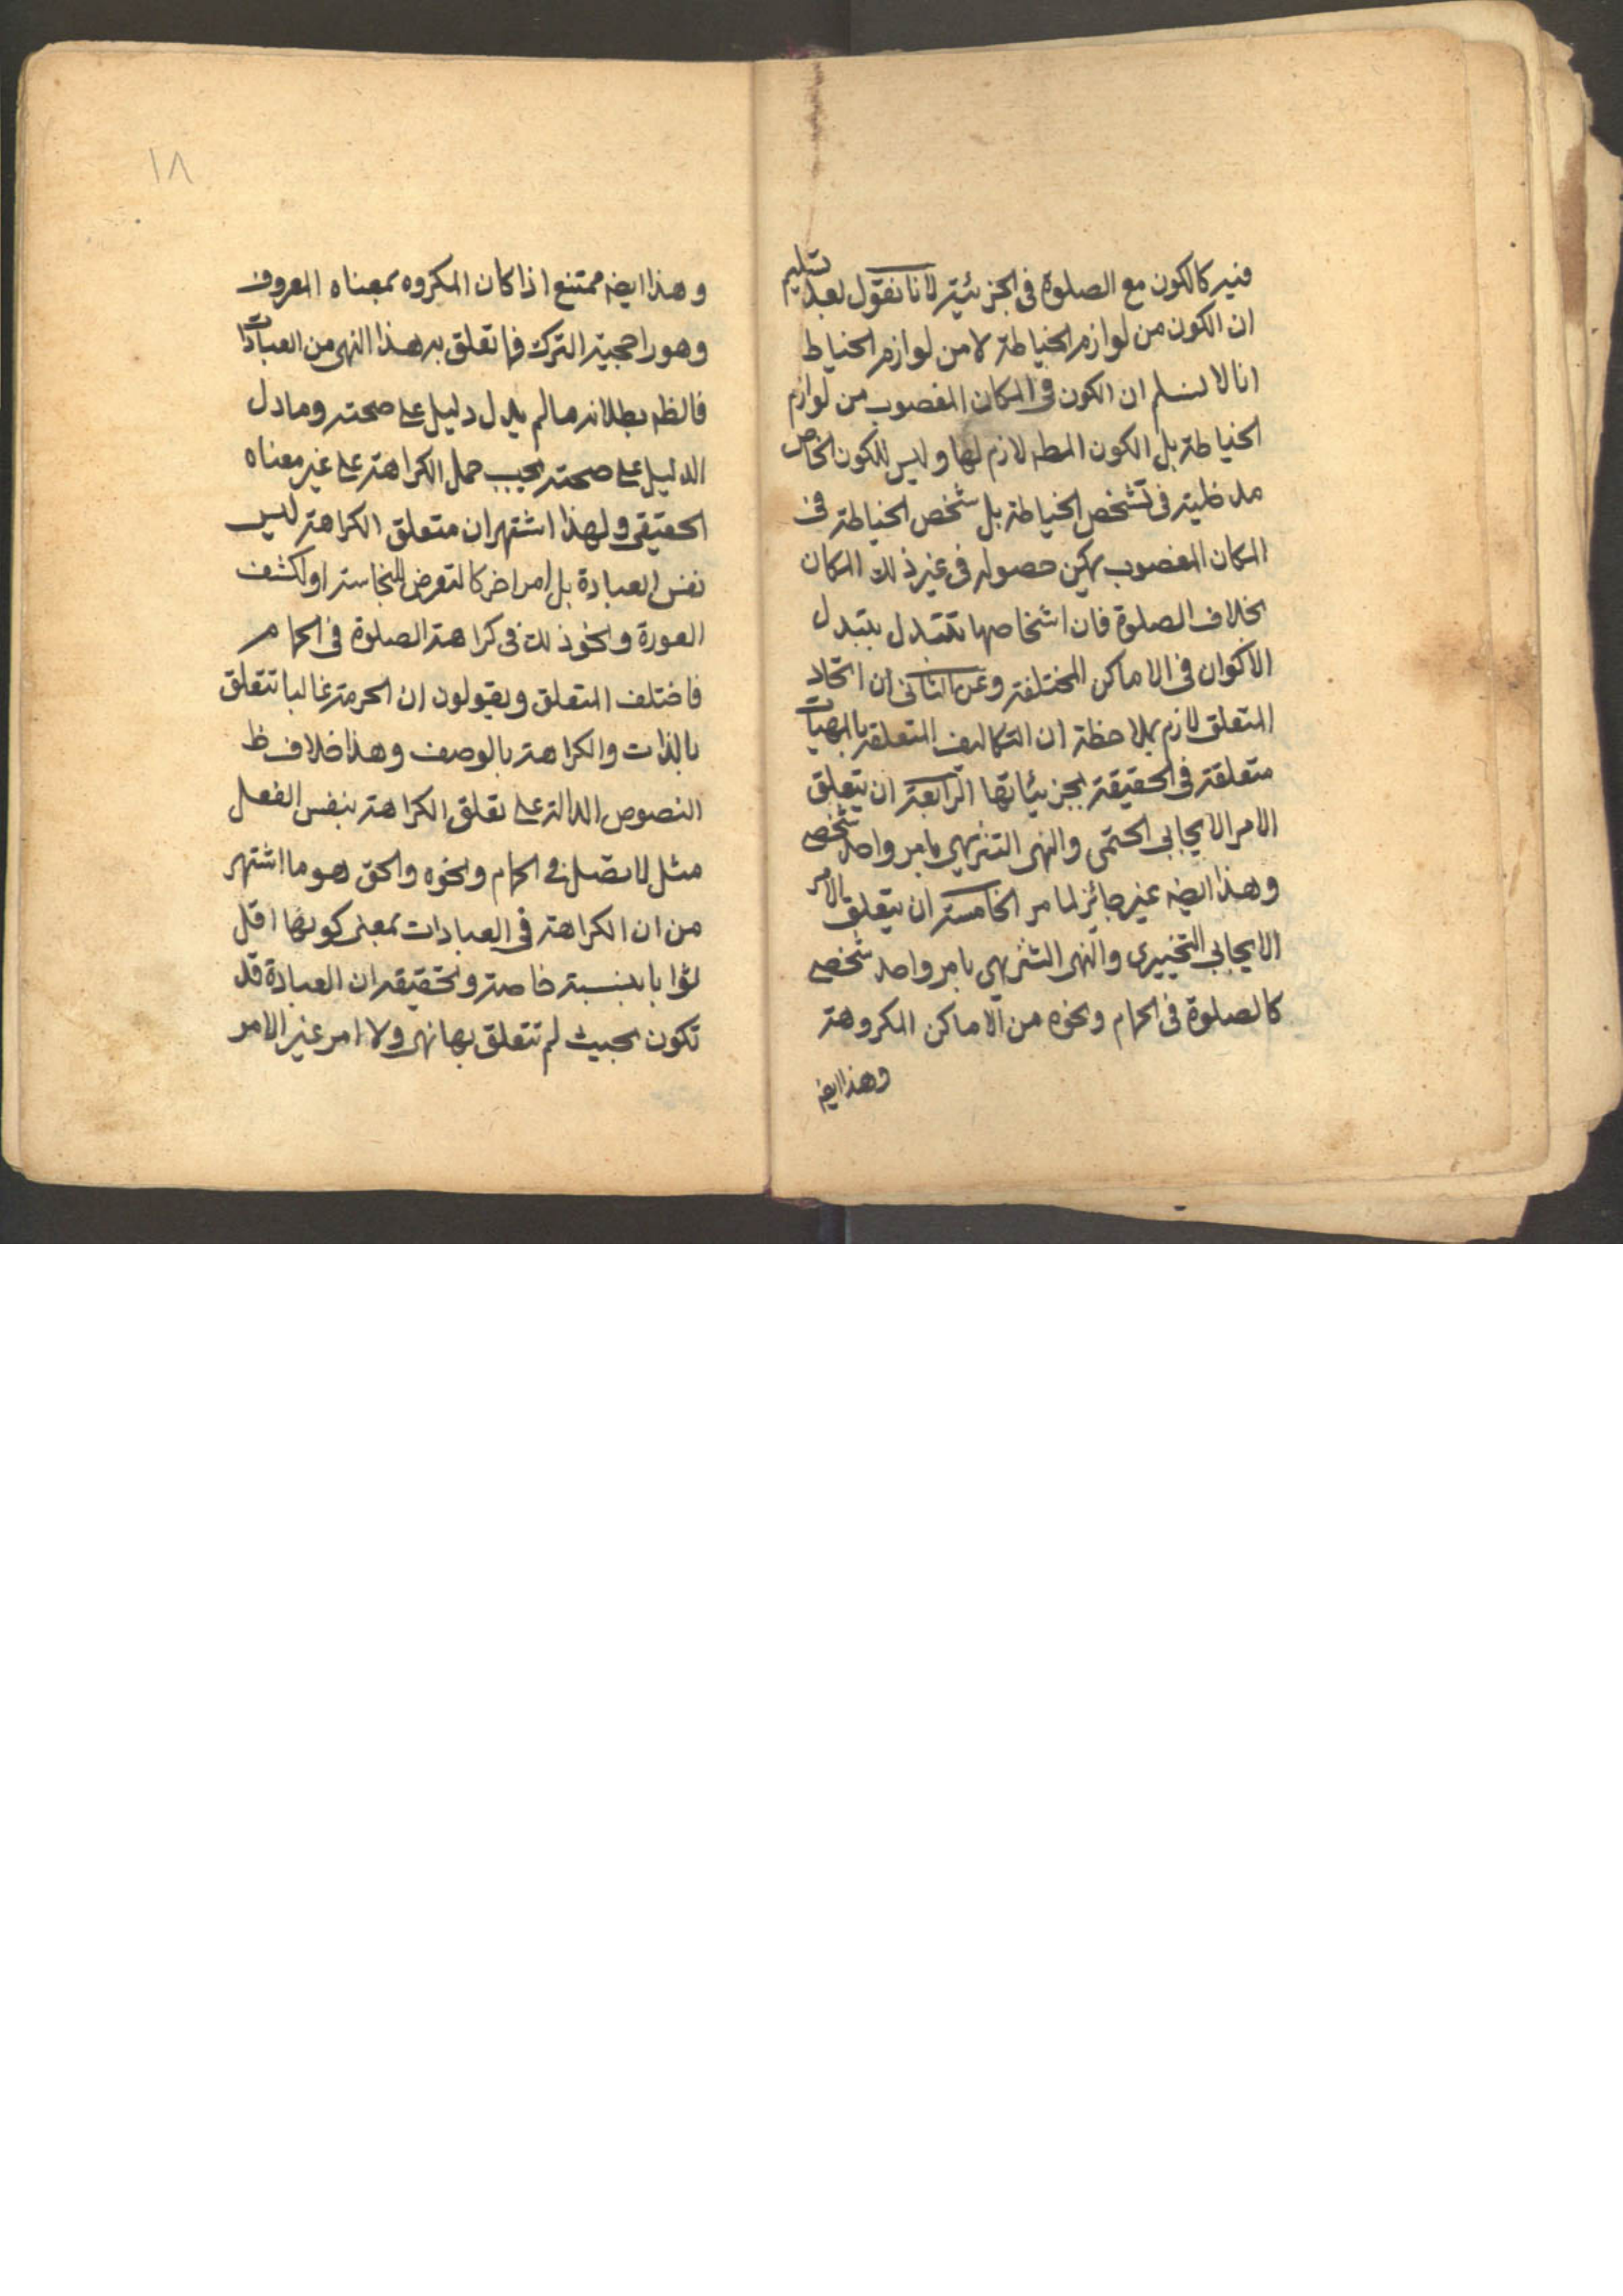 فيه كالكون مع الصلوة فى الجزئية لانا نقول بعد تسليم
ان الكون من لوازم الخياطة لا من لوازم الخياط
انا لا نسلم ان الكون فى المكان المغصوب من لوازم
الخياطة بل الكون المطه لازم لها وليس للكون الخاص
مدخلية فى تشخص الخياطة بل شخص الخياطة فى
المكان المغصوب يمكن حصوله فى غير ذلك المكان
بخلاف الصلوة فان اشخاصها تتبدل بتبدل
الاكوان فى الاماكن المختلفة وعن الثانى ان اتحاد
المتعلق لازم بملاحظة ان التكاليف المتعلقة بالمهيات
متعلقة فى الحقيقة بجزئياتها الرابعة ان يتعلق
الامر الايجابى الحتمى والنهى التنزيهى بامر واحد شخصى
وهذا ايضه غير جائز لما مر الخامسة ان يتعلق الامر
الايجابى التخييرى والنهى التنزيهى بامر واحد شخصى
كالصلوة فى الحمام ونحوه من الاماكن المكروهة
وهذا ايضه
١٨
وهذا ايضه ممتنع اذا كان المكروه بمعناه المعروف
وهو راجحية الترك فما تعلق به هذا النهى من العبادات
فالظه بطلانه ما لم يدل دليل على صحته وما دل
الدليل على صحته يجب حمل الكراهة على غير معناه
الحقيقى ولهذا اشتهر ان متعلق الكراهة ليس
نفس العبادة بل امر اخر كالتعرض للنجاسة او لكشف
العورة ونحو ذلك فى كراهة الصلوة فى الحمام
فاختلف المتعلق ويقولون ان الحرمة غالبا تتعلق
بالذات والكراهة بالوصف وهذا خلاف ظ
النصوص الدالة على تعلق الكراهة بنفس الفعل
مثل لا تصل فى الحمام ونحوه والحق هو ما اشتهر
من ان الكراهة فى العبادات بمعنى كونها اقل
ثوابا بنسبة خاصة وتحقيقه ان العبادة قد
تكون بحيث لم تتعلق بها نهى ولا امر غير الامر